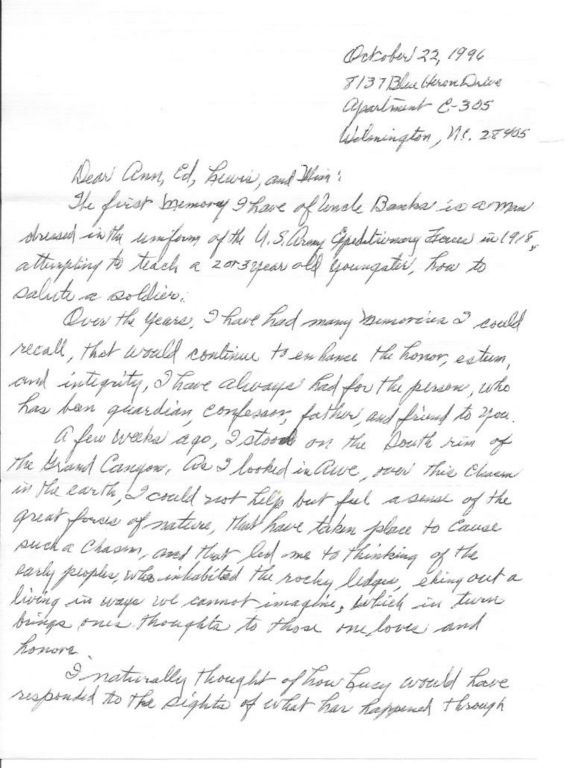 October 22, 1996
8137 Blue Heron Drive
Apartment E-305
Wilmington, N.C. 28405
Dear Ann, Ed, Lewis, and Mim:
The first Memory I have of Uncle Banks is a man
dressed in the uniform of the U.S. Army Expeditionary Forces in 1918,
attempting to teach a 2 or 3 year old youngster, how to
salute a soldier.
Over the years, I have had many memories I could
recall, that would continue to enhance the honor, esteem,
and integrity, I have always had for the person, who
has been guardian, confessor, father, and friend to you.
A few weeks ago, I stood on the South rim of
the Grand Canyon. As I looked in awe, over this chasm
in the earth, I could not help but feel a sense of the
great forces of nature, that have taken place to cause
such a chasm, and that led me to thinking of the
early peoples, who inhabited the rocky ledges, eking out a
living in ways we cannot imagine, which in turn
brings ones thoughts to those one loves and
honors.
I naturally thought of how Lucy would have
responded to the sights of what has happened through